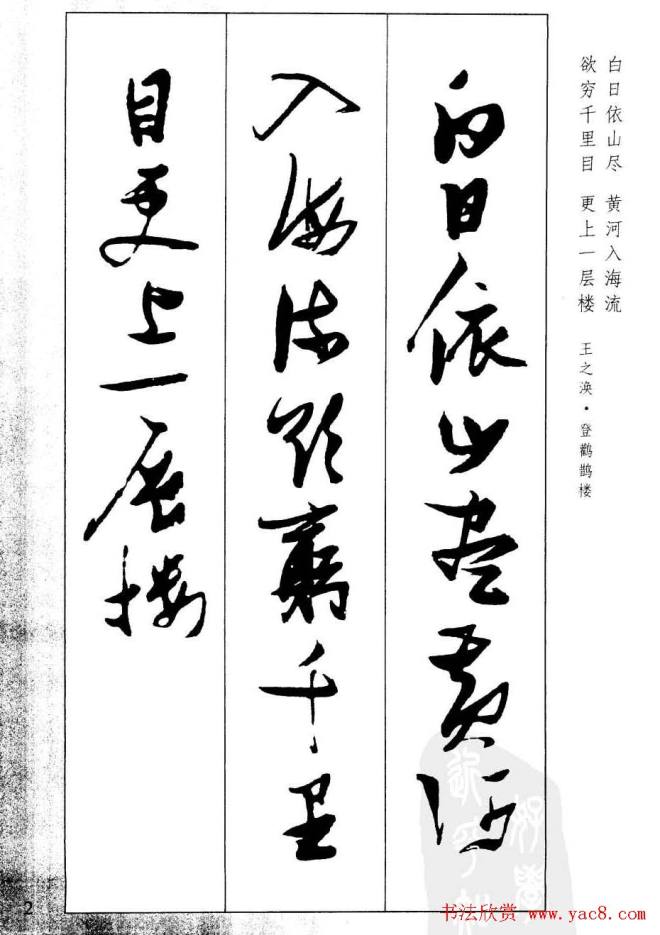 白日依山尽 黄河入海流
欲穷千里目 更上一层楼 王之涣·登鹳鹊楼
白日依山盡黄河
入海流欲窮千里
目更上一層樓
2
书法欣赏 www.yac8.com